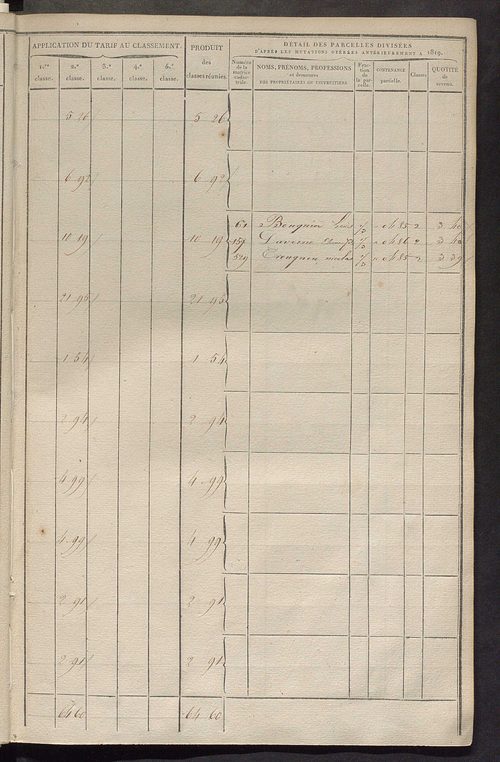 APPLICATION DU TARIF AU CLASSEMENT. PRODUIT des classes réunies. DÉTAIL DES PARCELLES DIVISÉES
D'APRÈS LES MUTATIONS OPÉRÉES ANTÉRIEUREMENT A 1819.
1.re classe. 2.e classe. 3.e classe. 4.e classe. 5.e classe. Numéros de la matrice cadastrale. NOMS, PRÉNOMS, PROFESSIONS et demeures DES PROPRIÉTAIRES OU USUFRUITIERS. Fraction de la parcelle. CONTENANCE partielle. Classes. QUOTITÉ de revenu.
5 26 5 26
6 92 6 92
61 2 3 40
10 19 10 19 159 2 3 40
529 2 3 39
21 95 21 95
1 54 1 54
2 94 2 94
4 99 4 99
4 99 4 99
2 91 2 91
2 91 2 91
64 60 64 60